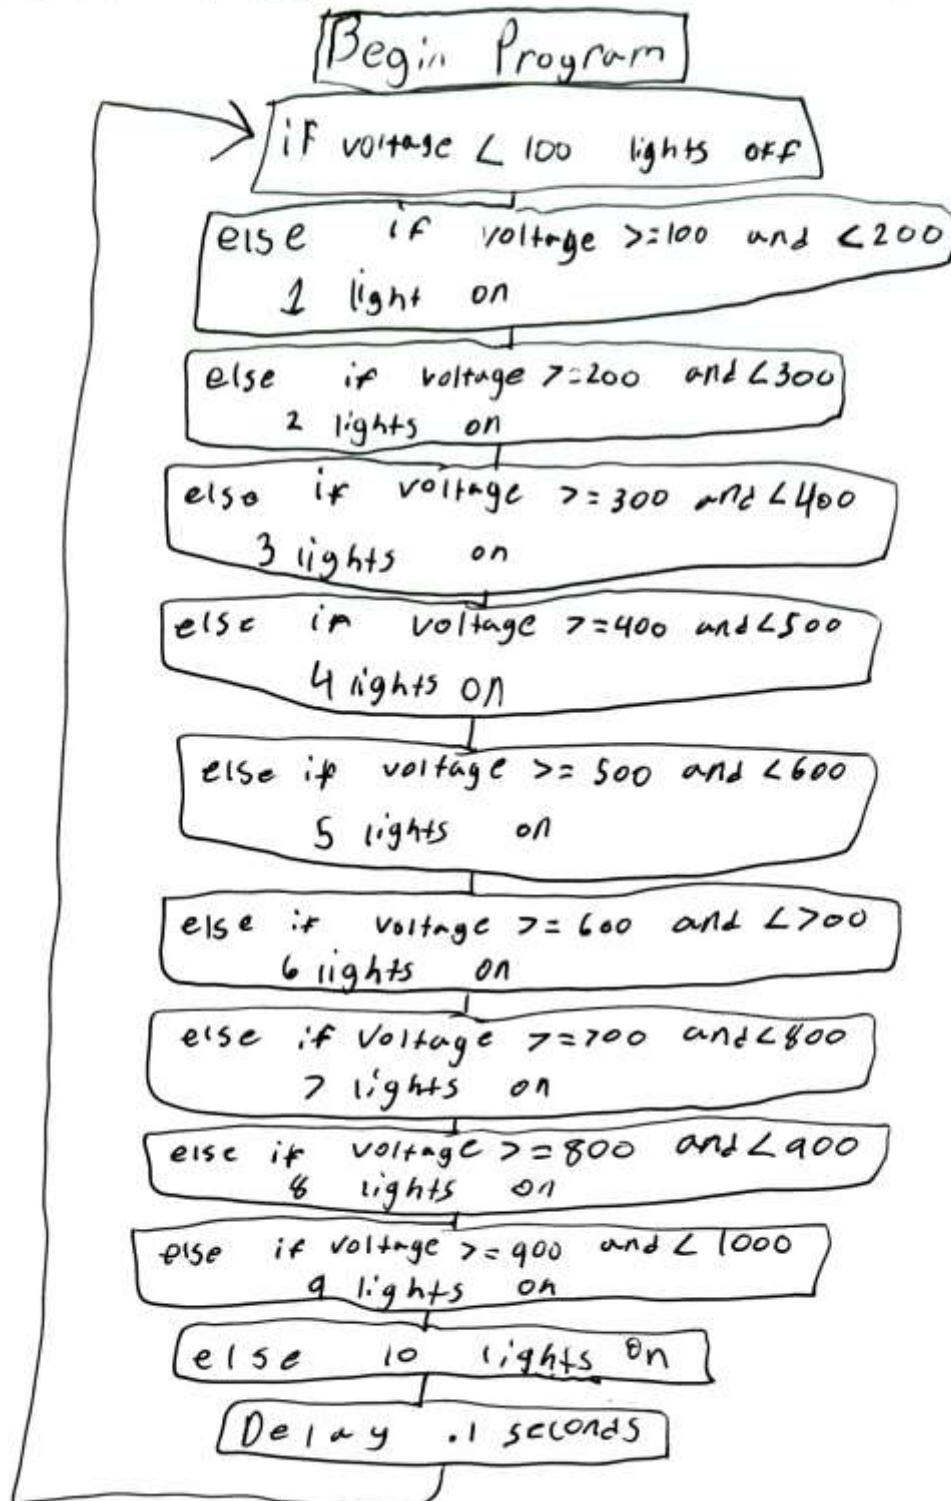 Begin Program
if voltage < 100 lights off
else if voltage >=100 and <200
1 light on
else if voltage >=200 and <300
2 lights on
else if voltage >=300 and <400
3 lights on
else if voltage >=400 and <500
4 lights on
else if voltage >= 500 and <600
5 lights on
else if voltage >= 600 and <700
6 lights on
else if voltage >=700 and <800
7 lights on
else if voltage >=800 and <900
8 lights on
else if voltage >=900 and < 1000
9 lights on
else 10 lights on
Delay .1 seconds